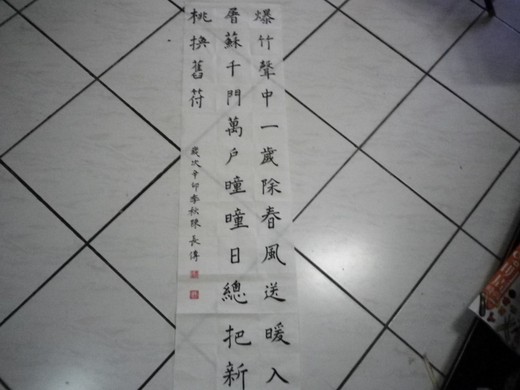 爆竹聲中一歲除春風送暖入
屠蘇千門萬戶曈曈日總把新
桃換舊符
歲次辛卯季秋陳長傳